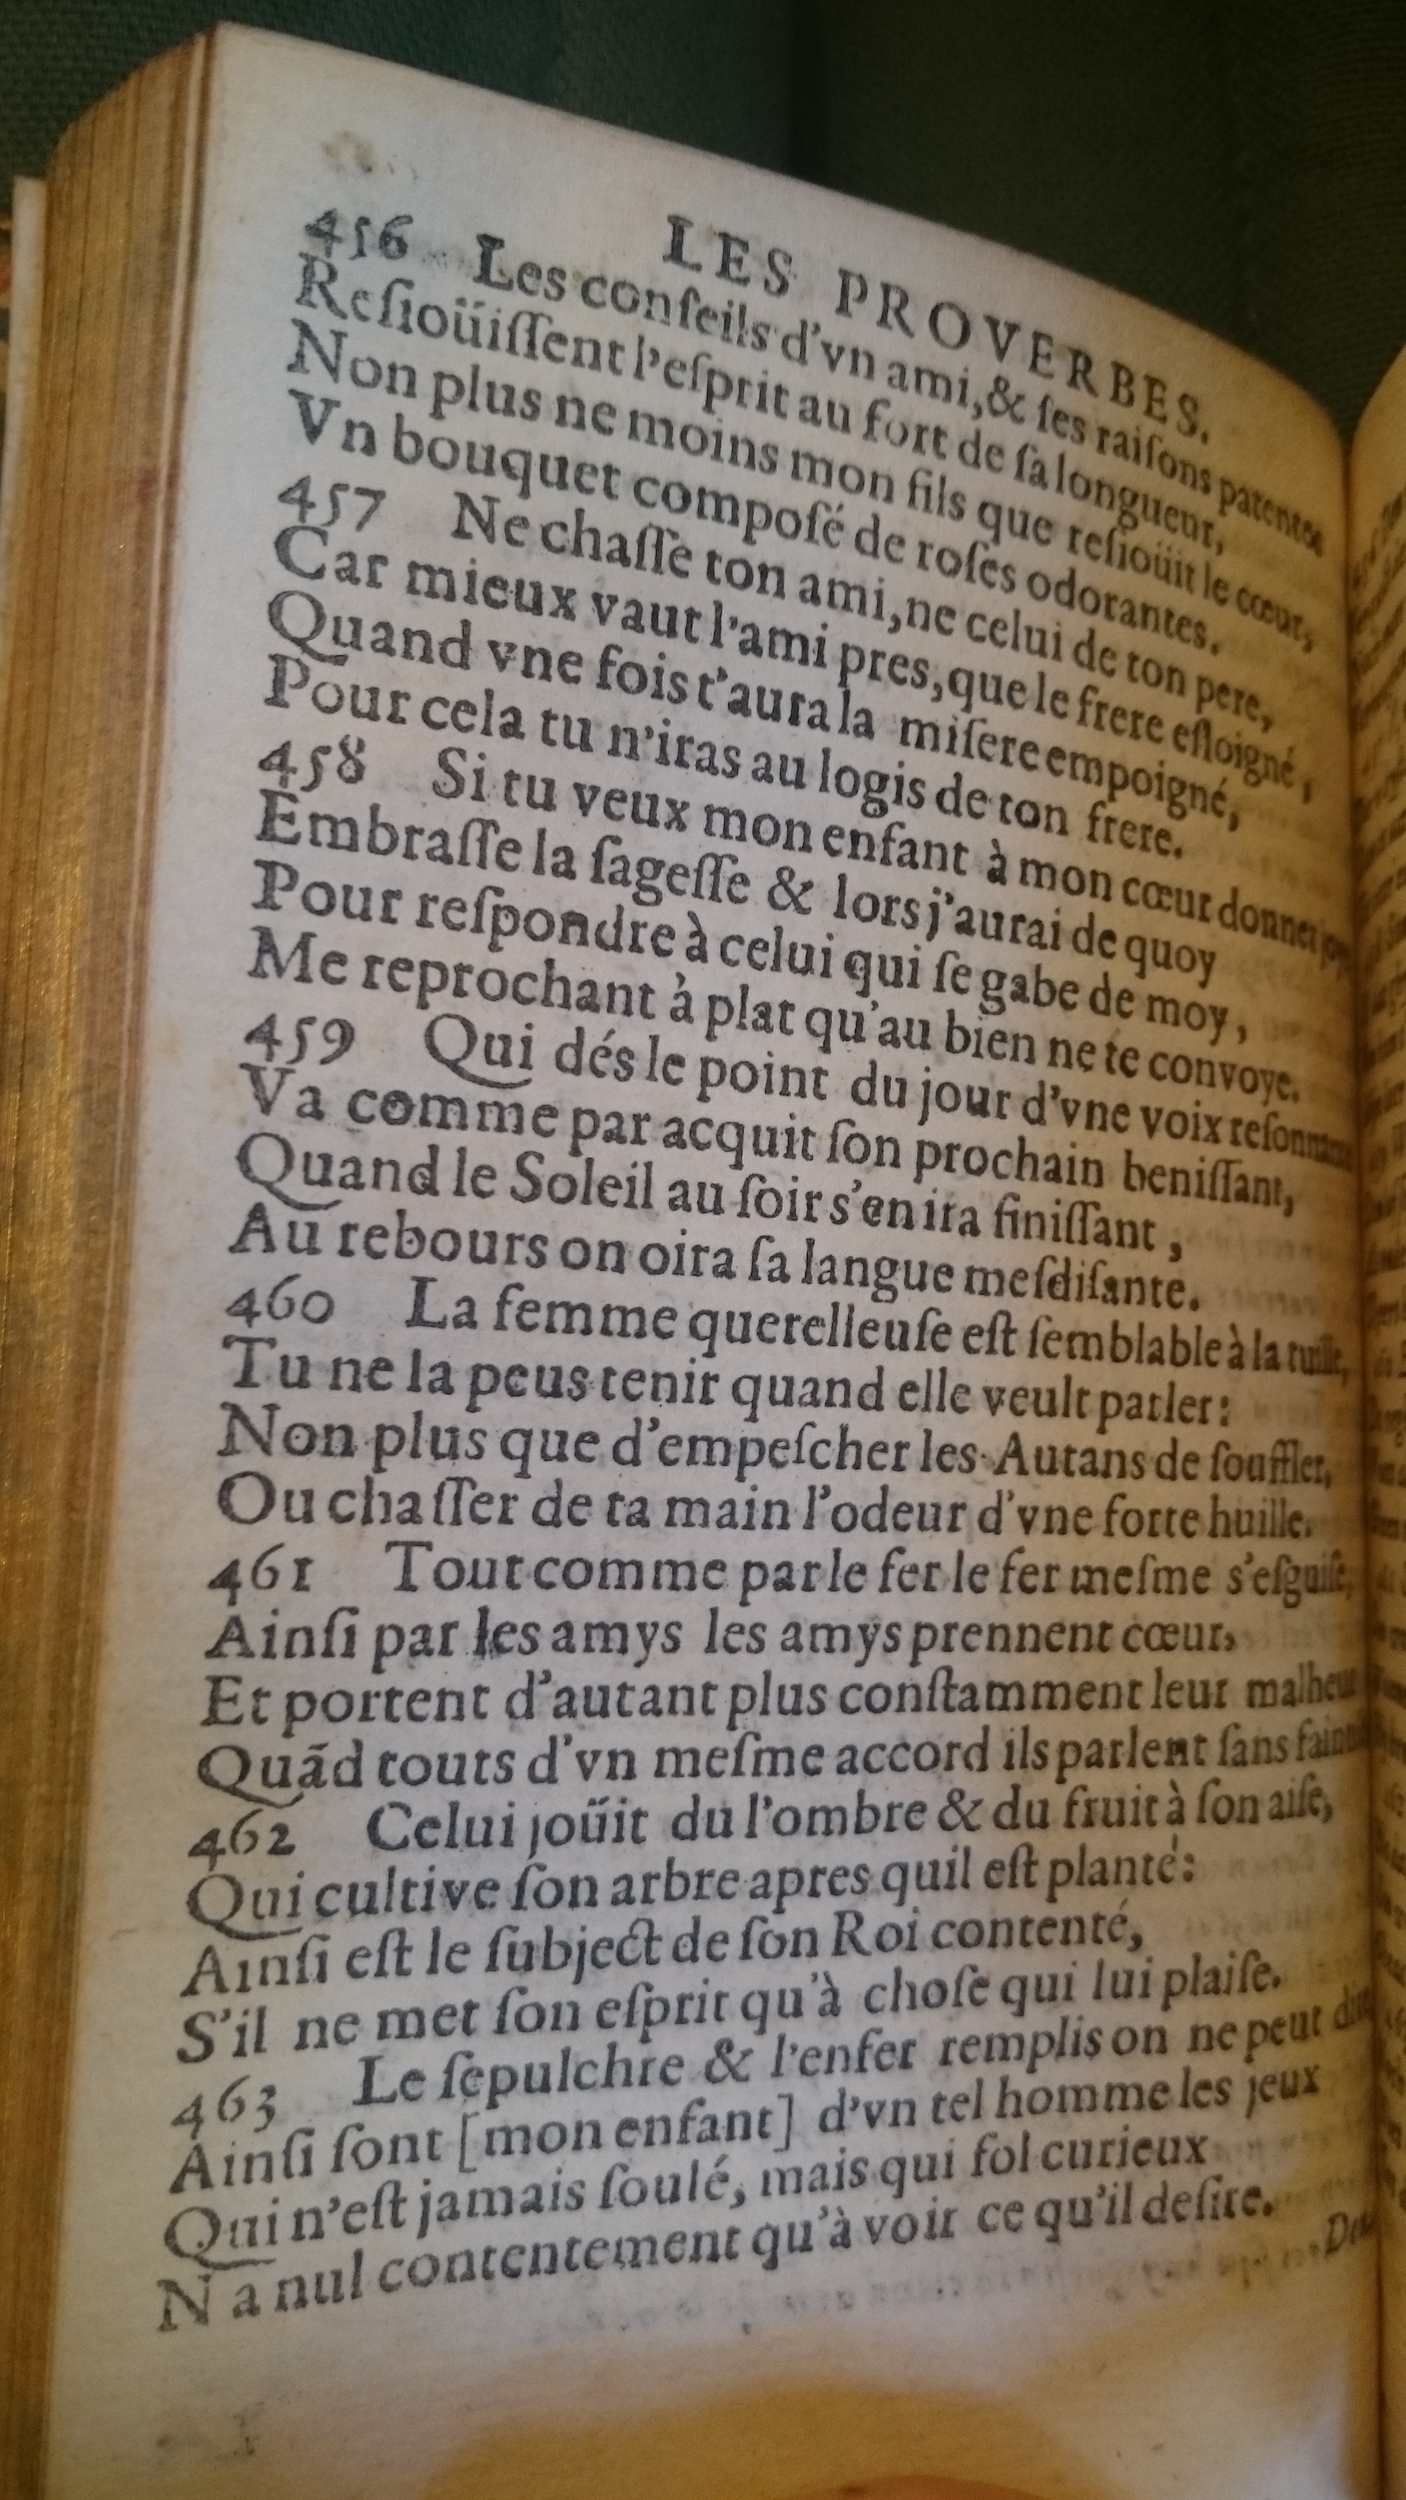 LES PROVERBES.
456 Les conſeils d'vn ami, & ſes raiſons patentes
Reſioüiſſent l'eſprit au fort de ſa longueur,
Non plus ne moins mon fils que reſioüit le cœur,
Vn bouquet compoſé de roſes odorantes.
457 Ne chaſſe ton ami, ne celui de ton pere,
Car mieux vaut l'ami pres, que le frere eſloigné,
Quand vne fois t'aura la miſere empoigné,
Pour cela tu n'iras au logis de ton frere.
458 Si tu veux mon enfant à mon cœur donner joye
Embraſſe la ſageſſe & lors j'aurai de quoy
Pour reſpondre à celui qui ſe gabe de moy,
Me reprochant à plat qu'au bien ne te convoye.
459 Qui dés le point du jour d'vne voix
Va comme par acquit ſon prochain beniſſant,
Quand le Soleil au ſoir s'en ira finiſſant,
Au rebours on oira ſa langue meſdiſante.
460 La femme querelleuſe eſt ſemblable à la tuille,
Tu ne la peus tenir quand elle veult parler:
Non plus que d'empeſcher les Autans de ſouffler,
Ou chaſſer de ta main l'odeur d'vne forte huille.
461 Tout comme par le fer le fer meſme s'eſguiſe,
Ainſi par les amys les amys prennent cœur,
Et portent d'autant plus conſtamment leur malheur
Quãd touts d'vn meſme accord ils parlent ſans
462 Celui joüit du l'ombre & du fruit à ſon aiſe,
Qui cultive ſon arbre apres quil eſt planté:
Ainſi eſt le ſubject de ſon Roi contenté,
S'il ne met ſon eſprit qu'à choſe qui lui plaiſe.
463 Le ſepulchre & l'enfer remplis on ne peut dire
Ainſi ſont [mon enfant] d'vn tel homme les jeux
Qui n'eſt jamais ſoulé, mais qui fol curieux
N a nul contentement qu'à voir ce qu'il deſire.